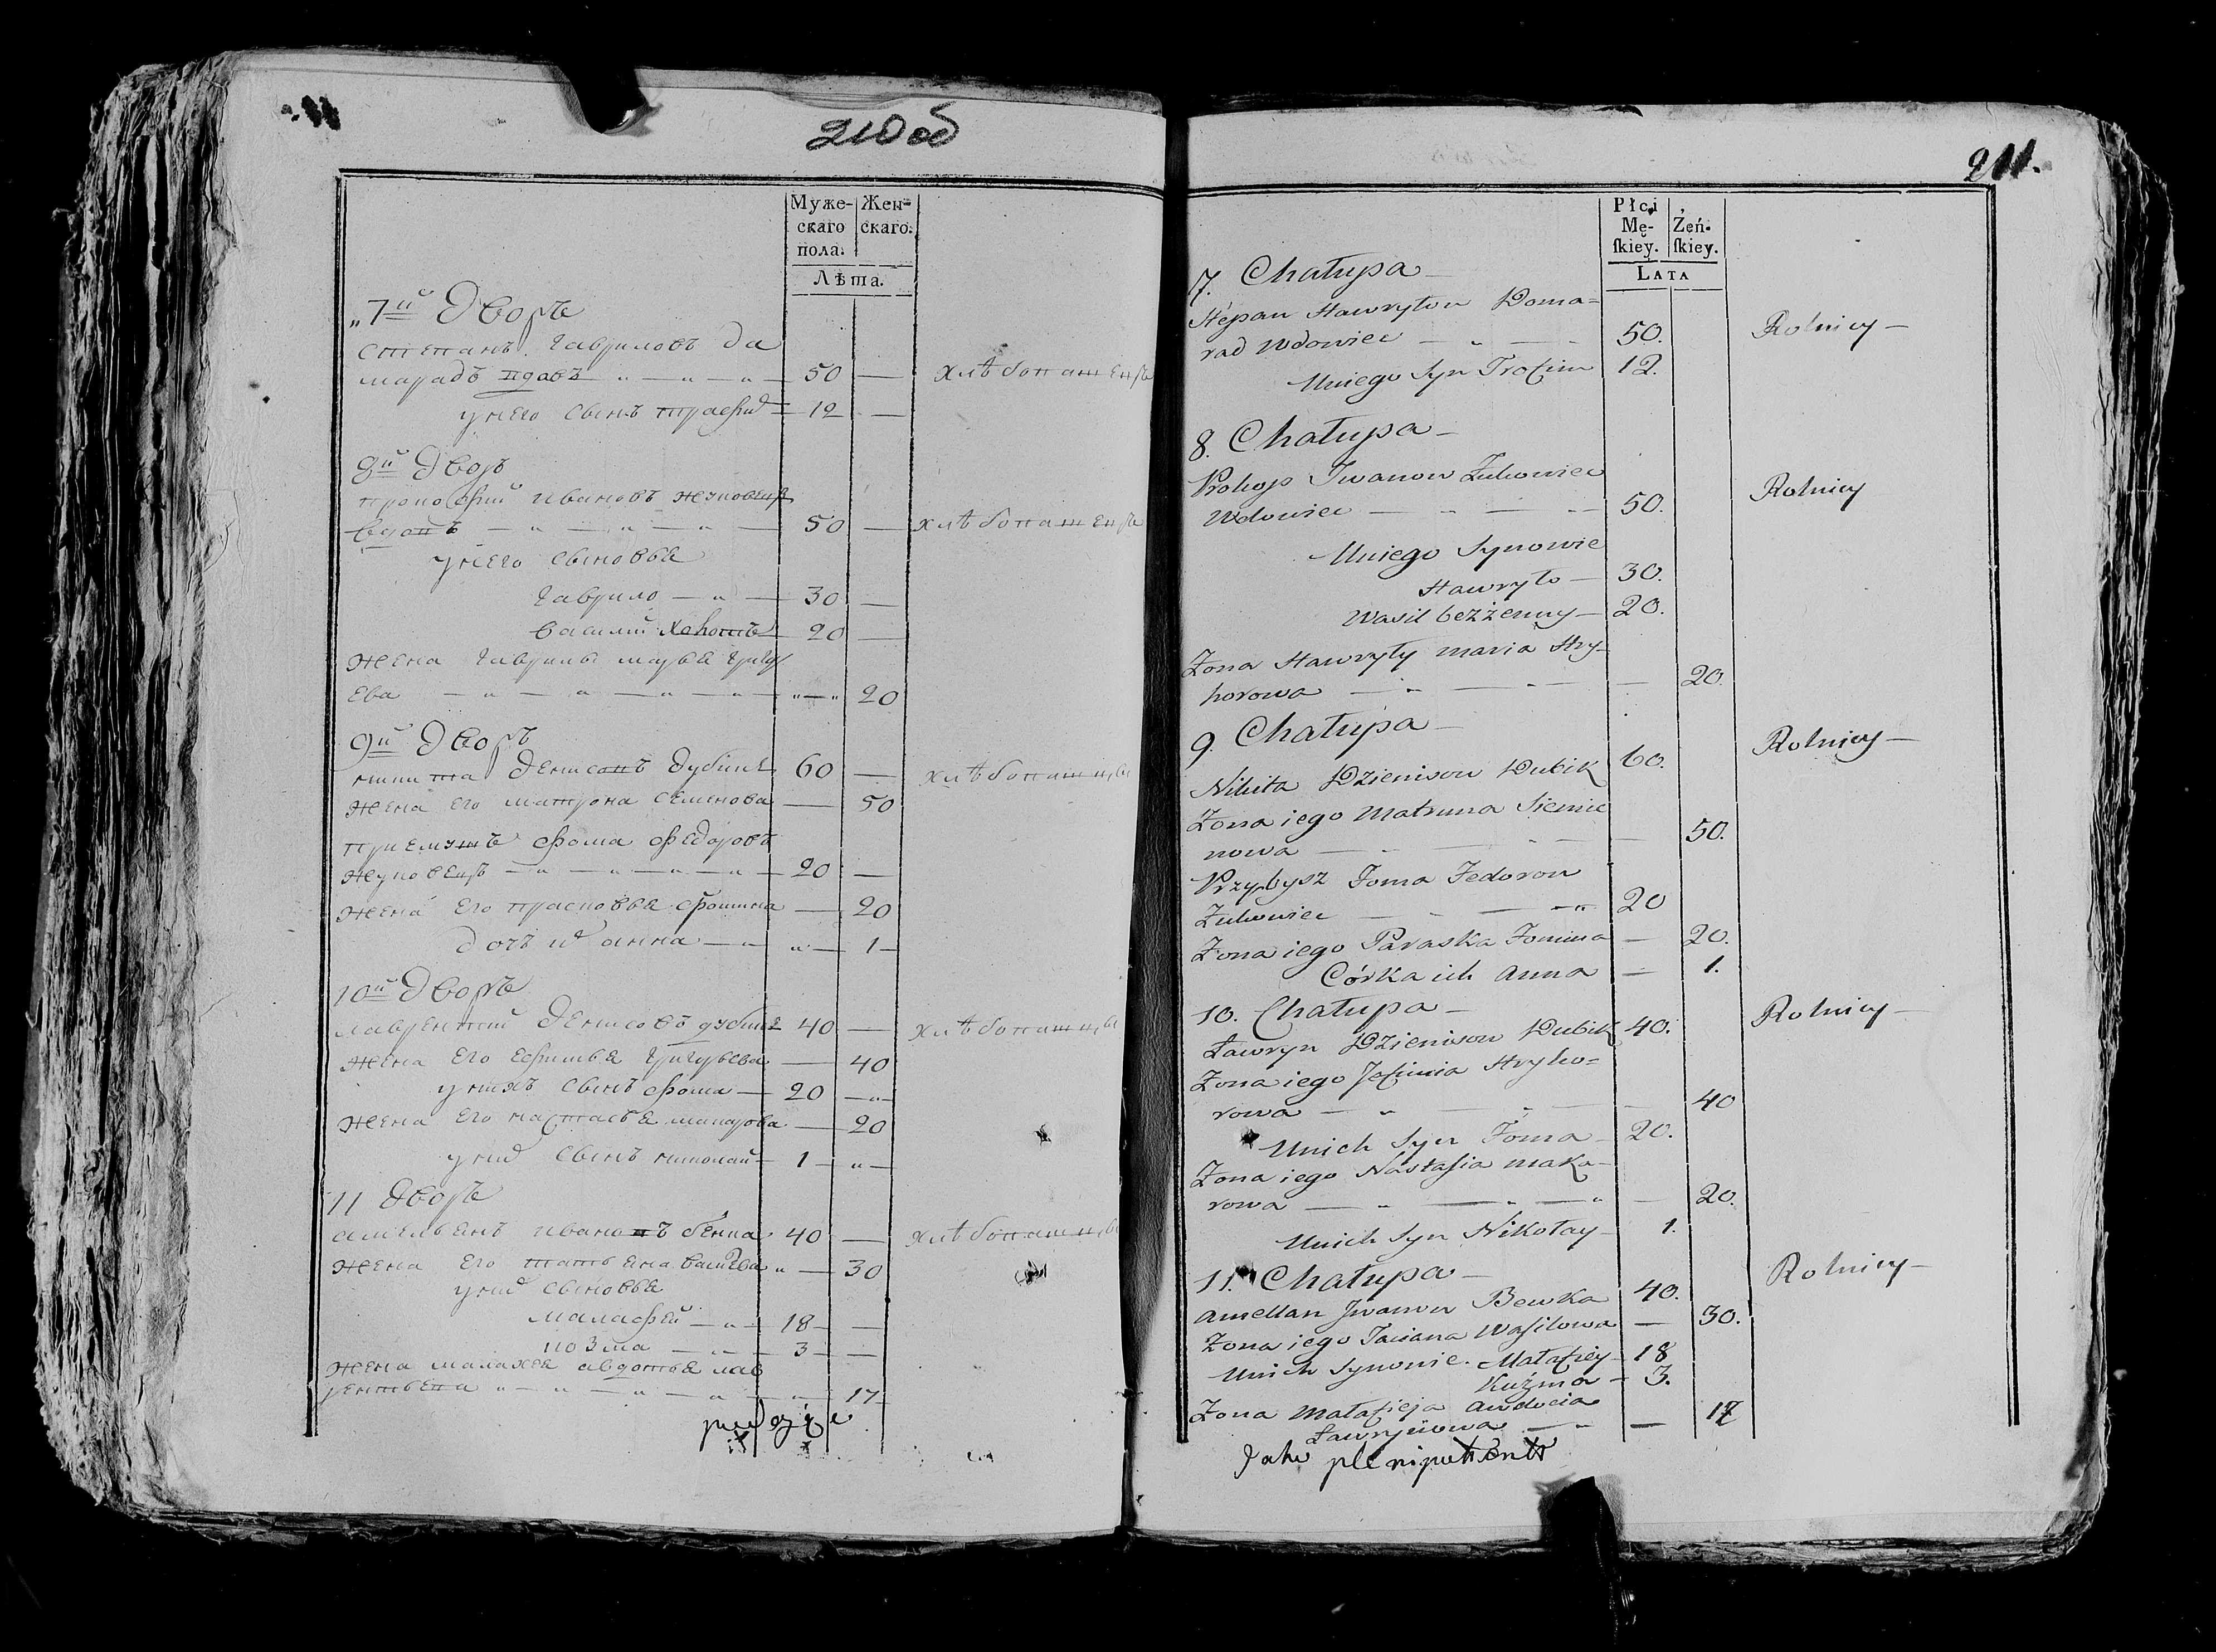 210 об
Муже-
скаго
пола.
Жен-
скаго.
Лѣта.
„7й Дворъ
Степанъ Гавриловъ да
марадъ вдовъ — „ — „ — 50 — хлѣбопашецъ
унего сынъ трафим 12 —
8й Дворъ
прокофий Ивановъ жуковецъ
вдовъ — „ — „ — „ — 50 — хлѣбопашецъ
унего сыновья
Гаврило — „ — 30 —
Василий холостъ 20 —
Жена Гаврилы марья григор
ева — „ — „ — „ — „ — „ 20
9й Дворъ
никита денисовъ дубикъ 60 — хлѣбопашцы
Жена его матрона семенова — 50
приемышъ фома федоровъ
жуковецъ — „ — „ — „ — „ — 20 —
Жена его прасковья фомина — 20
дочъ их анна — „ „ — 1 —
10й Дворъ
лаврентий денисовъ дубикъ 40 — хлѣбопашцы
Жена его ефимья григорьева — 40
унихъ сынъ фома — 20 — „ —
Жена его настасья макарова — 20
уних сынъ николай — 1 — „ —
11 дворъ
амельянъ ивановъ бевка 40 — хлѣбопашцы
Жена его татьяна васильева „ — 30
уних сыновья
малафей — „ — 18 —
козма — „ — 3 — —
Жена малафея авдотья лав
рентьева „ — „ — „ — „ — „ — 17 —
211.
Płci
Mę-
ſkiey.
Żeń-
ſkiey.
LATA
7. Chałupa —
Stepan Hawryłow Doma=
rad Wdowiec — „ — — 50. Rolnicy —
Uniego Syn Trofim 12.
8. Chałupa —
Prokop Iwanow Żukowiec
Wdowiec — — — — 50. Rolnicy
Uniego Synowie
Hawryło — 30.
Wasil bezżenny — 20.
Żona Hawryły maria Hry-
horowa — „ — — — 20.
9. Chałupa —
Nikita Dzienisow Dubik 60. Rolnicy —
Żona iego Matruna Siemie
nowa — — — — 50.
Przybysz Foma Fedorow
Żukowiec — — — „ 20
Żona iego Paraska Fomina — 20.
Córka ich Anna — 1.
10. Chałupa —
Ławryn Dzienisow Dubik 40. Rolnicy —
Żona iego Jefimia Hryho=
rowa — „ — — — 40
Unich Syn Foma — 20.
Żona iego Nastasia maka-
rowa — „ — „ — „ — 20.
Unich Syn Nikołay — 1.
11. Chałupa — Rolnicy —
Amellan Iwanow Bewka 40.
Żona iego Taciana Wasilowa — 30.
Unich Synowie. Małafiey — 18
Kuźma — 3.
Żona Małafieja Awdocia
Ławrynowa — „ — 17
Jako plenipottentt